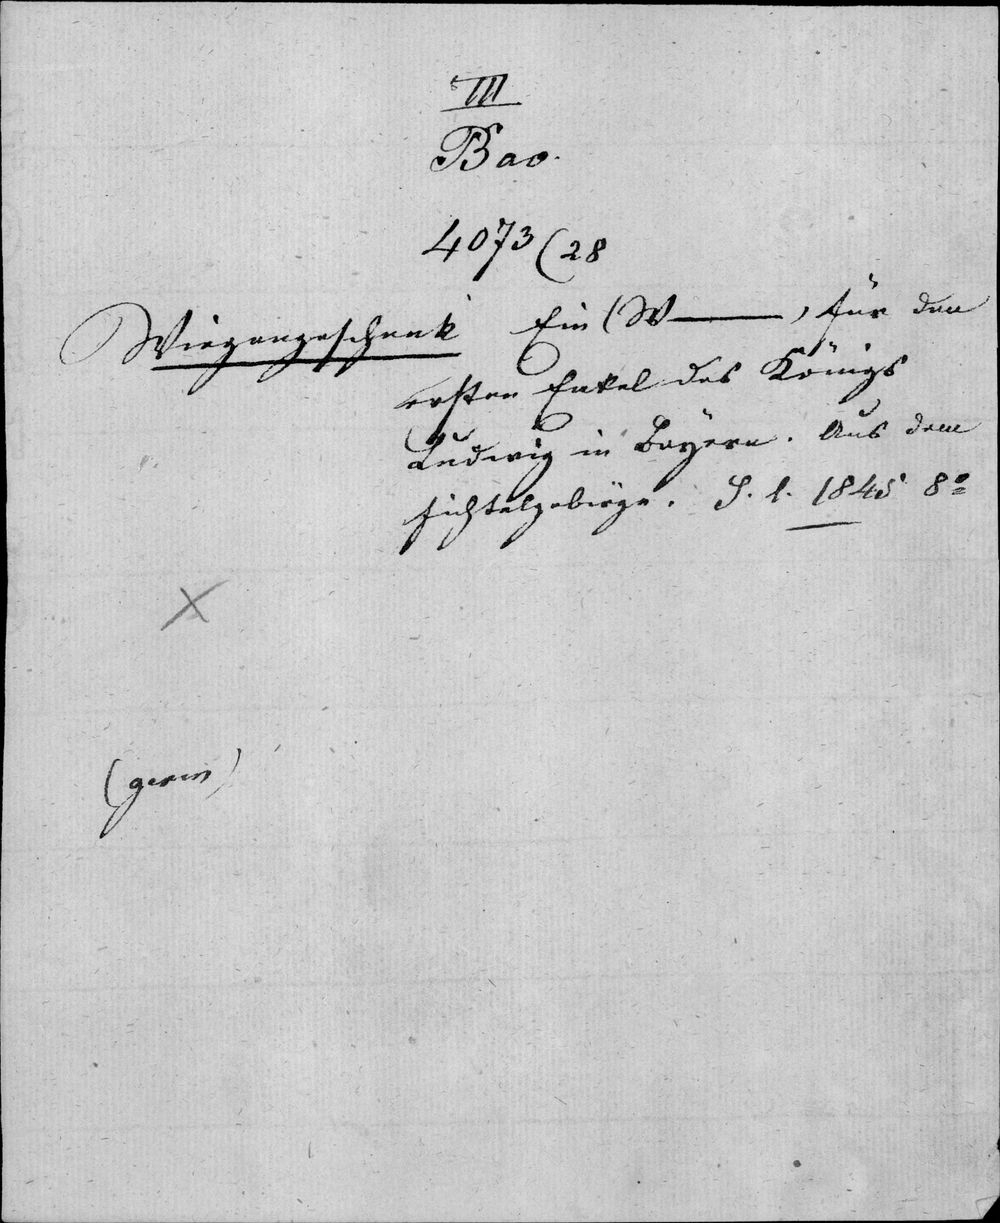 III
Bav.
4073 (28
Wiegengeschenk Ein (W———) für den
ersten Enkel des Königs
Ludwig in Bayern. Aus dem
Fichtelgebirge. S. l. 1845 8°
(germ)